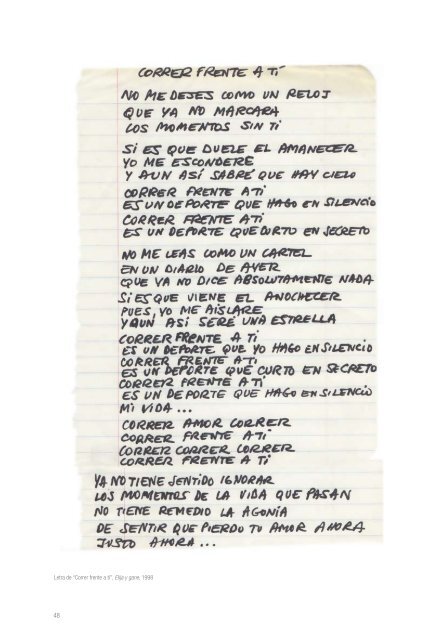 CORRER FRENTE A TÍ
NO ME DEJES COMO UN RELOJ
QUE YA NO MARCARA
LOS MOMENTOS SIN TI
SI ES QUE DUELE EL AMANECER
YO ME ESCONDERE
Y AUN ASÍ SABRÉ QUE HAY CIELO
CORRER FRENTE A TI
ES UN DEPORTE QUE HAGO EN SILENCIO
CORRER FRENTE A TI
ES UN DEPORTE QUE CURTO EN SECRETO
NO ME LEAS COMO UN CARTEL
EN UN DIARIO DE AYER
QUE YA NO DICE ABSOLUTAMENTE NADA
SI ES QUE VIENE EL ANOCHECER
PUES, YO ME AISLARE
Y AUN ASI SERÉ UNA ESTRELLA
CORRER FRENTE A TI
ES UN DEPORTE QUE YO HAGO EN SILENCIO
CORRER FRENTE A TI
ES UN DEPORTE QUE CURTO EN SECRETO
CORRER FRENTE A TI
ES UN DEPORTE QUE HAGO EN SILENCIO
MI VIDA ...
CORRER AMOR CORRER
CORRER FRENTE A TI
CORRER CORRER CORRER
CORRER FRENTE A TI
YA NO TIENE SENTIDO IGNORAR
LOS MOMENTOS DE LA VIDA QUE PASAN
NO TIENE REMEDIO LA AGONÍA
DE SENTIR QUE PIERDO TU AMOR AHORA
JUSTO AHORA ...
Letra de "Correr frente a ti", Elija y gane, 1998
48